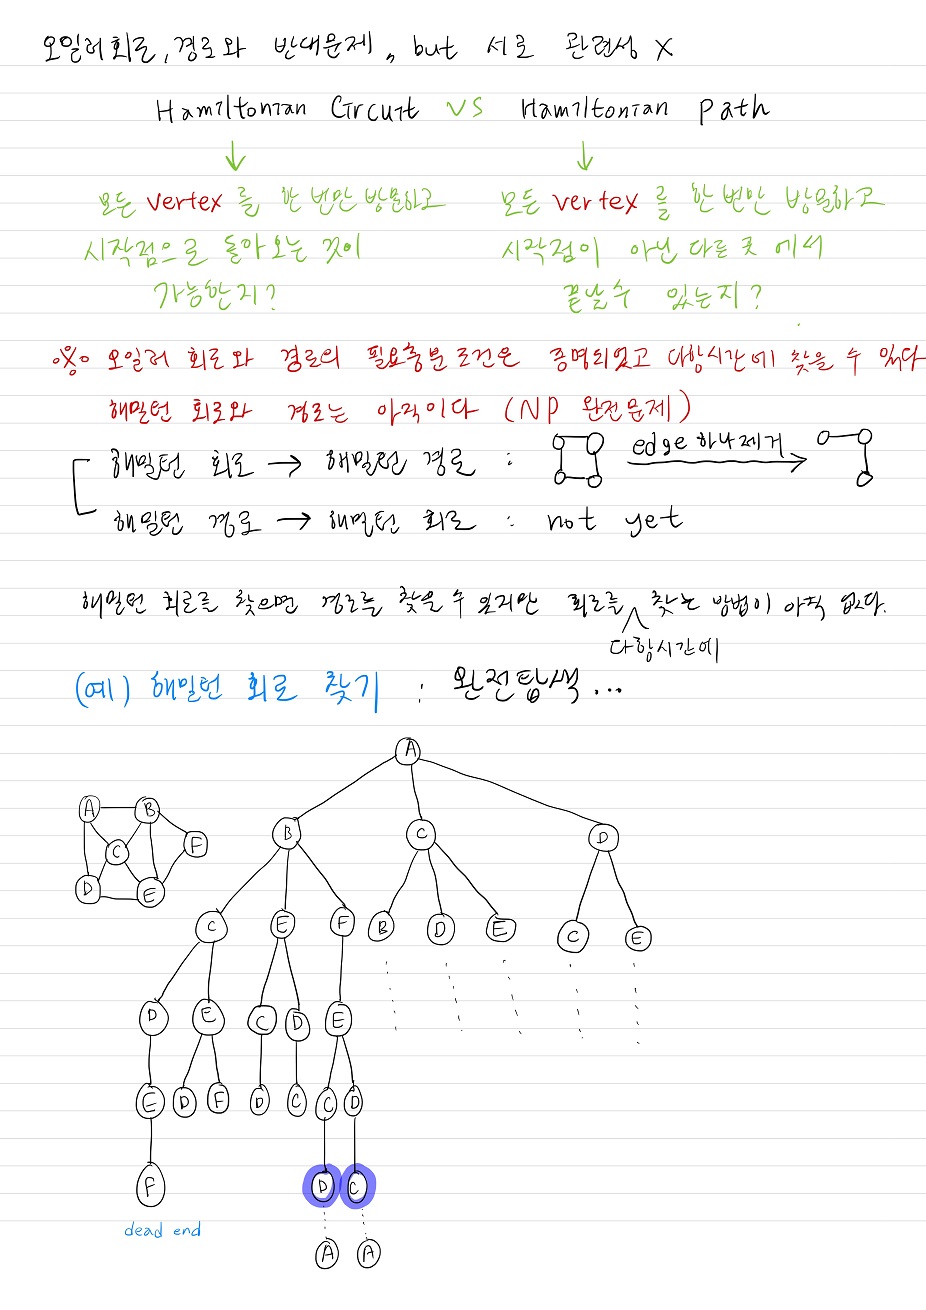 오일러 회로, 경로와 반대문제, but 서로 관련성 X
Hamiltonian Circuit VS Hamiltonian path
모든 vertex를 한 번만 방문하고
시작점으로 돌아오는 것이
가능한지?
모든 vertex를 한 번만 방문하고
시작점이 아닌 다른 곳에서
끝날 수 있는지?
※ 오일러 회로와 경로의 필요충분조건은 증명되었고 다항시간에 찾을 수 있다
해밀턴 회로와 경로는 아직이다 (NP 완전문제)
해밀턴 회로 → 해밀턴 경로 : edge 하나제거
해밀턴 경로 → 해밀턴 회로 : not yet
해밀턴 회로를 찾으면 경로를 찾을 수 있지만 회로를 찾는 방법이 아직 없다.
다항시간에
(예) 해밀턴 회로 찾기 : 완전탐색...
A
A B
B C D
C F
D E
C E F B D E C E
D E C D E
E D F D C C D
F D C
dead end
A A